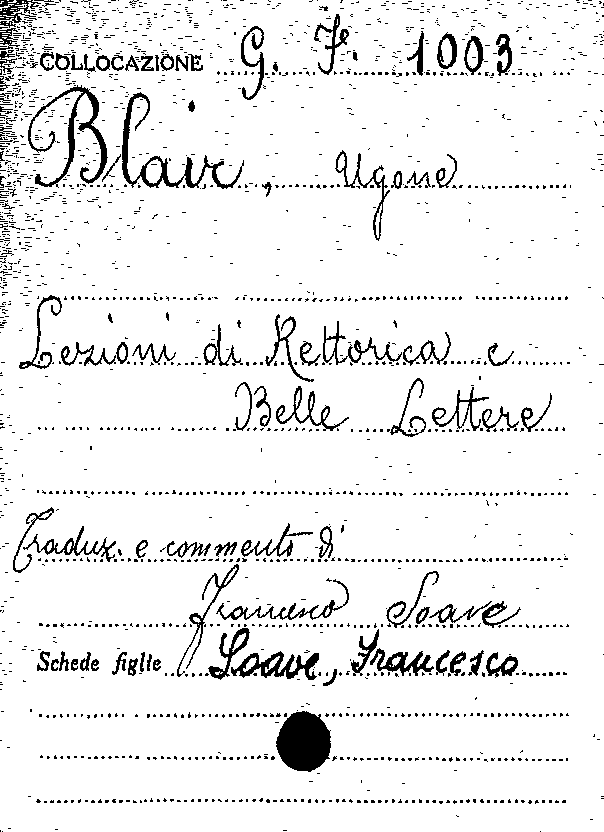 COLLOCAZIONE G. F. 1003
Blair, Ugone
Lezioni di Rettorica e
Belle Lettere
Traduz. e commento di
Francesco Soave
Schede figlie Soave, Francesco